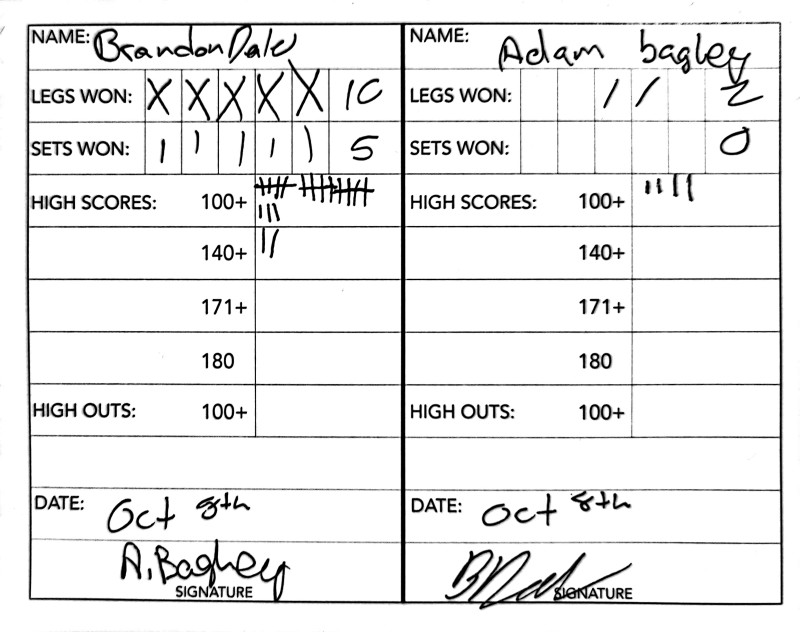 NAME: Brandon Dale
LEGS WON: X X X X X 10
SETS WON: 1 1 1 1 1 5
HIGH SCORES: 100+
140+
171+
180
HIGH OUTS: 100+
DATE: Oct 8th
A. Bagley
SIGNATURE
NAME: Adam bagley
LEGS WON: / / 2
SETS WON: 0
HIGH SCORES: 100+ IIII
140+
171+
180
HIGH OUTS: 100+
DATE: Oct 8th
SIGNATURE